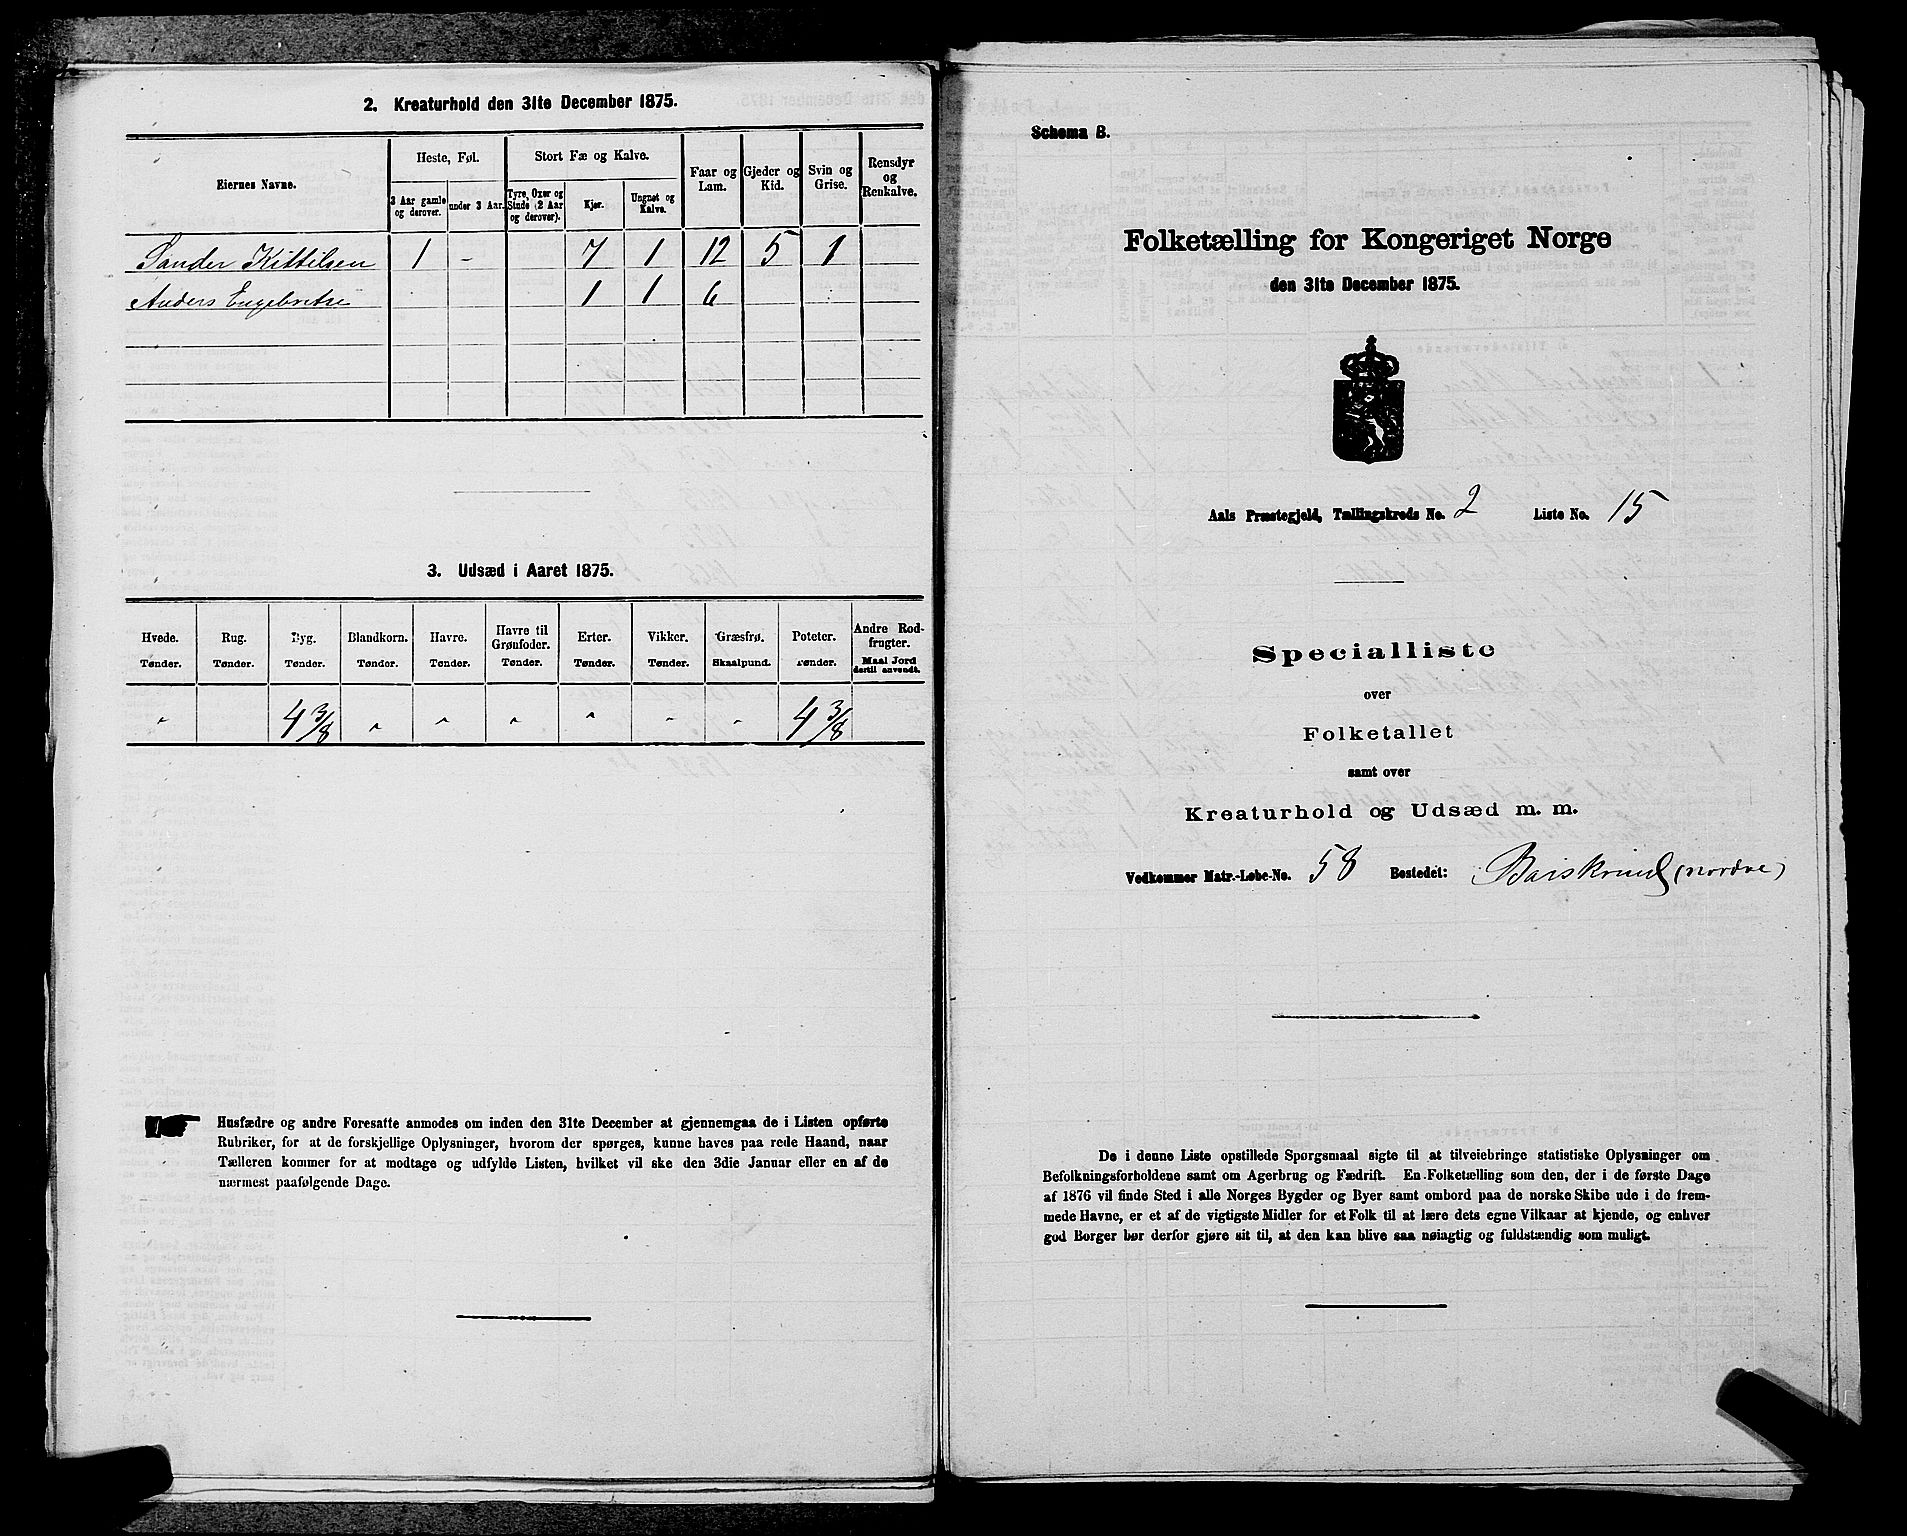 2. Kreaturhold den 31te December 1875.
Eiernes Navne.
Heste, Føl.
Stort Fæ og Kalve.
Faar og Lam.
Gjeder og Kid.
Svin og Grise.
Rensdyr og Renkalve.
3 Aar gamle og derover.
under 3 Aar.
Tyre, Oxer og Stude (2 Aar og derover).
Kjør.
Ungnøt og Kalve.
Sander Kittilsen 1 - 7 1 12 5 1
Anders Engebretse 1 1 6
3. Udsæd i Aaret 1875.
Hvede. Rug. Byg. Blandkorn. Havre. Havre til Grønfoder. Erter. Vikker. Græsfrø. Poteter. Andre Rodfrugter.
Tønder. Tønder. Tønder. Tønder. Tønder. Tønder. Tønder. Tønder. Skaalpund. Tønder. Maal Jord dertil anvendt.
" 4 3/8 " " " " " " 4 3/8
Husfædre og andre Foresatte anmodes om inden den 31te December at gjennemgaa de i Listen opførte
Rubriker, for at de forskjellige Oplysninger, hvorom der spørges, kunne haves paa rede Haand, naar
Tælleren kommer for at modtage og udfylde Listen, hvilket vil ske den 3die Januar eller en af de
nærmest paafølgende Dage.
Schema B.
Folketælling for Kongeriget Norge
den 31te December 1875.
Aals Præstegjeld, Tællingskreds No. 2 Liste No. 15
Specialliste
over
Folketallet
samt over
Kreaturhold og Udsæd m. m.
Vedkommer Matr.-Løbe-No. 58 Bostedet: Baiskrud (nordre)
De i denne Liste opstillede Spørgsmaal sigte til at tilveiebringe statistiske Oplysninger om
Befolkningsforholdene samt om Agerbrug og Fædrift. En Folketælling som den, der i de første Dage
af 1876 vil finde Sted i alle Norges Bygder og Byer samt ombord paa de norske Skibe ude i de frem-
mede Havne, er et af de vigtigste Midler for et Folk til at lære dets egne Vilkaar at kjende, og enhver
god Borger bør derfor gjøre sit til, at den kan blive saa nøiagtig og fuldstændig som muligt.